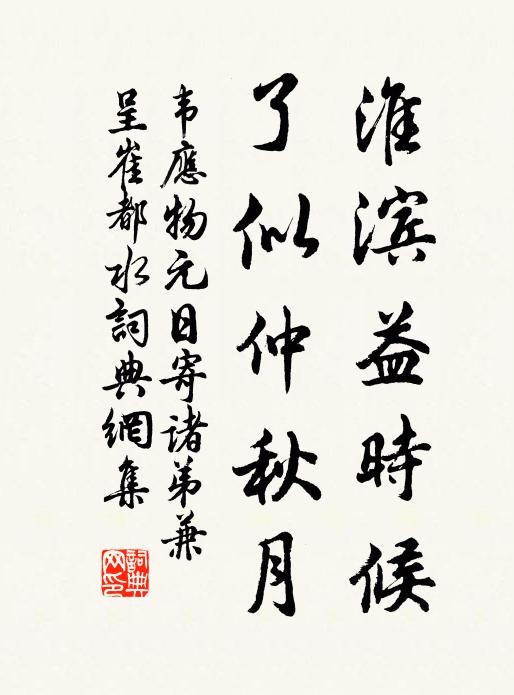 淮滨益時候
了似仲秋月
韦應物元日寄诸弟兼
呈崔都水詞典網集
詞典网印